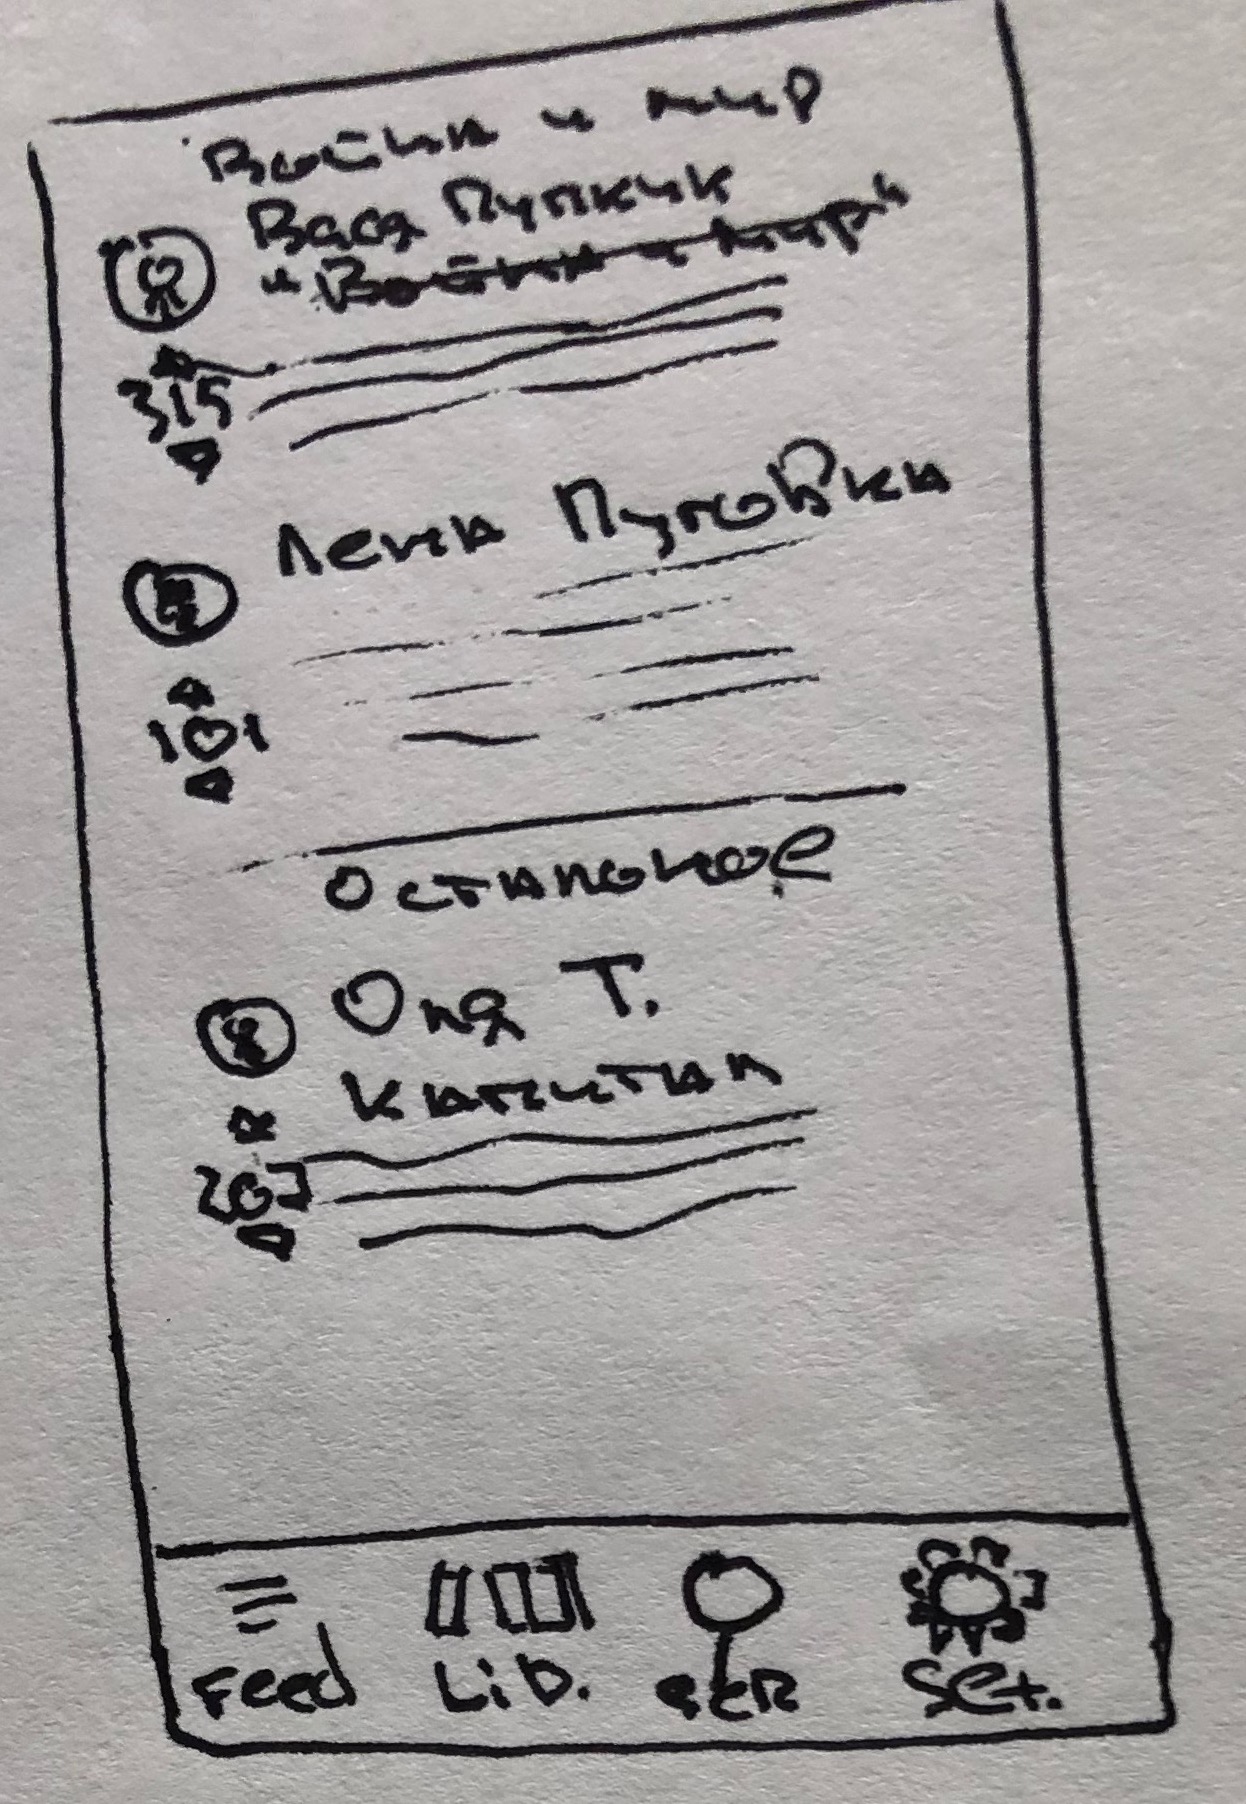 Война и мир
Вася Пупкин
"Война и мир"
315
Лена Пуговка
101
Остальное
Оля Т.
Капитал
203
Feed
Lib.
SER
Set.